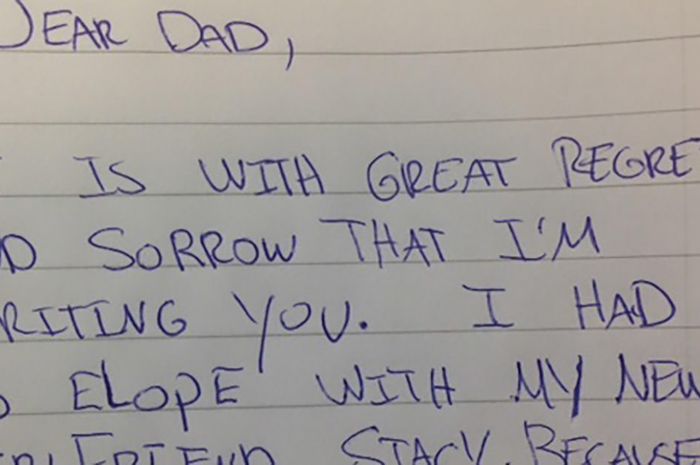 DEAR DAD,
IS WITH GREAT REGRE
SORROW THAT I'M
RITING YOU. I HAD
ELOPE WITH MY NEW
STACY, BECAUSE